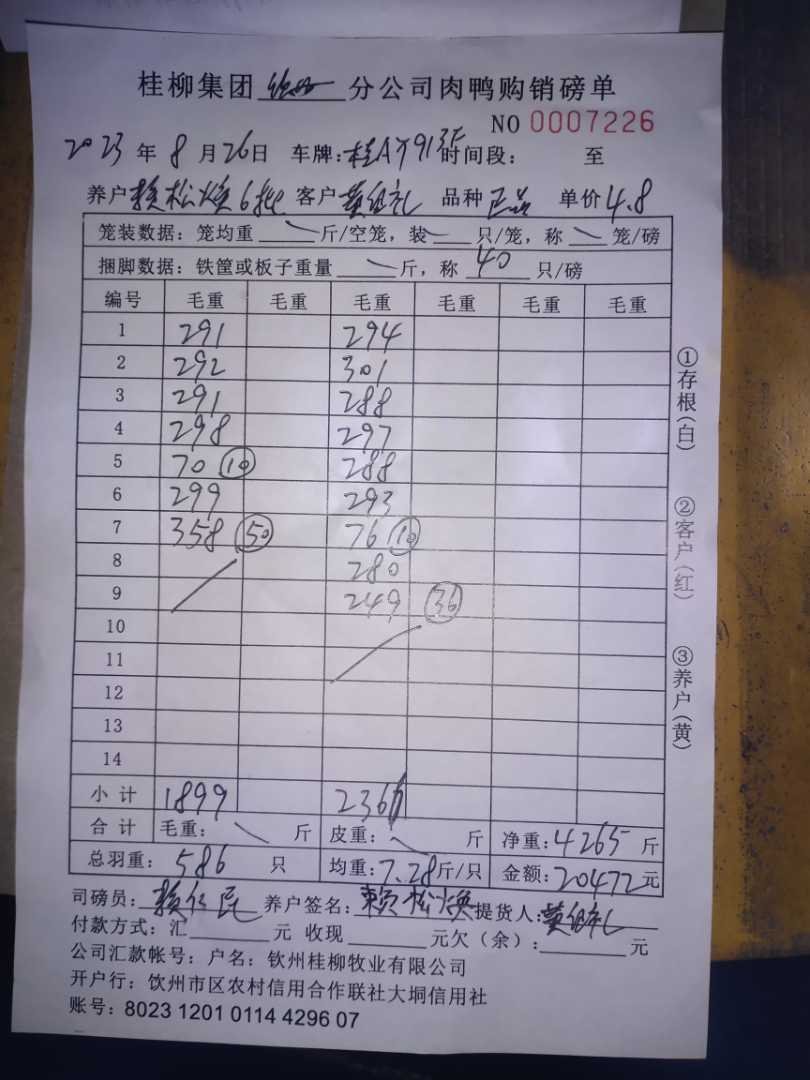 桂柳集团 钦州 分公司肉鸭购销磅单
NO 0007226
2023 年 8 月 26 日 车牌:桂AY913F 时间段: 至
养户 赖松焕6批 客户 黄组礼 品种 正品 单价 4.8
笼装数据:笼均重 斤/空笼,装 只/笼,称 笼/磅
捆脚数据:铁筐或板子重量 斤,称 40 只/磅
编号 毛重 毛重 毛重 毛重 毛重 毛重
1 291 294
2 292 301
3 291 288
4 298 297
5 70 ⑩ 288
6 299 293
7 358 ㊿ 76 ⑩
8 280
9 249 ㊱
10
11
12
13
14
小计 1899 2366
合计 毛重: 斤 皮重: 斤 净重:4265 斤
总羽重:586 只 均重:7.28 斤/只 金额:20472 元
司磅员:赖仁昆 养户签名:赖松焕 提货人:黄组礼
付款方式:汇 元 收现 元欠(余): 元
公司汇款帐号:户名:钦州桂柳牧业有限公司
开户行:饮州市区农村信用合作联社大垌信用社
账号:8023 1201 0114 4296 07
①存根(白)
②客户(红)
③养户(黄)